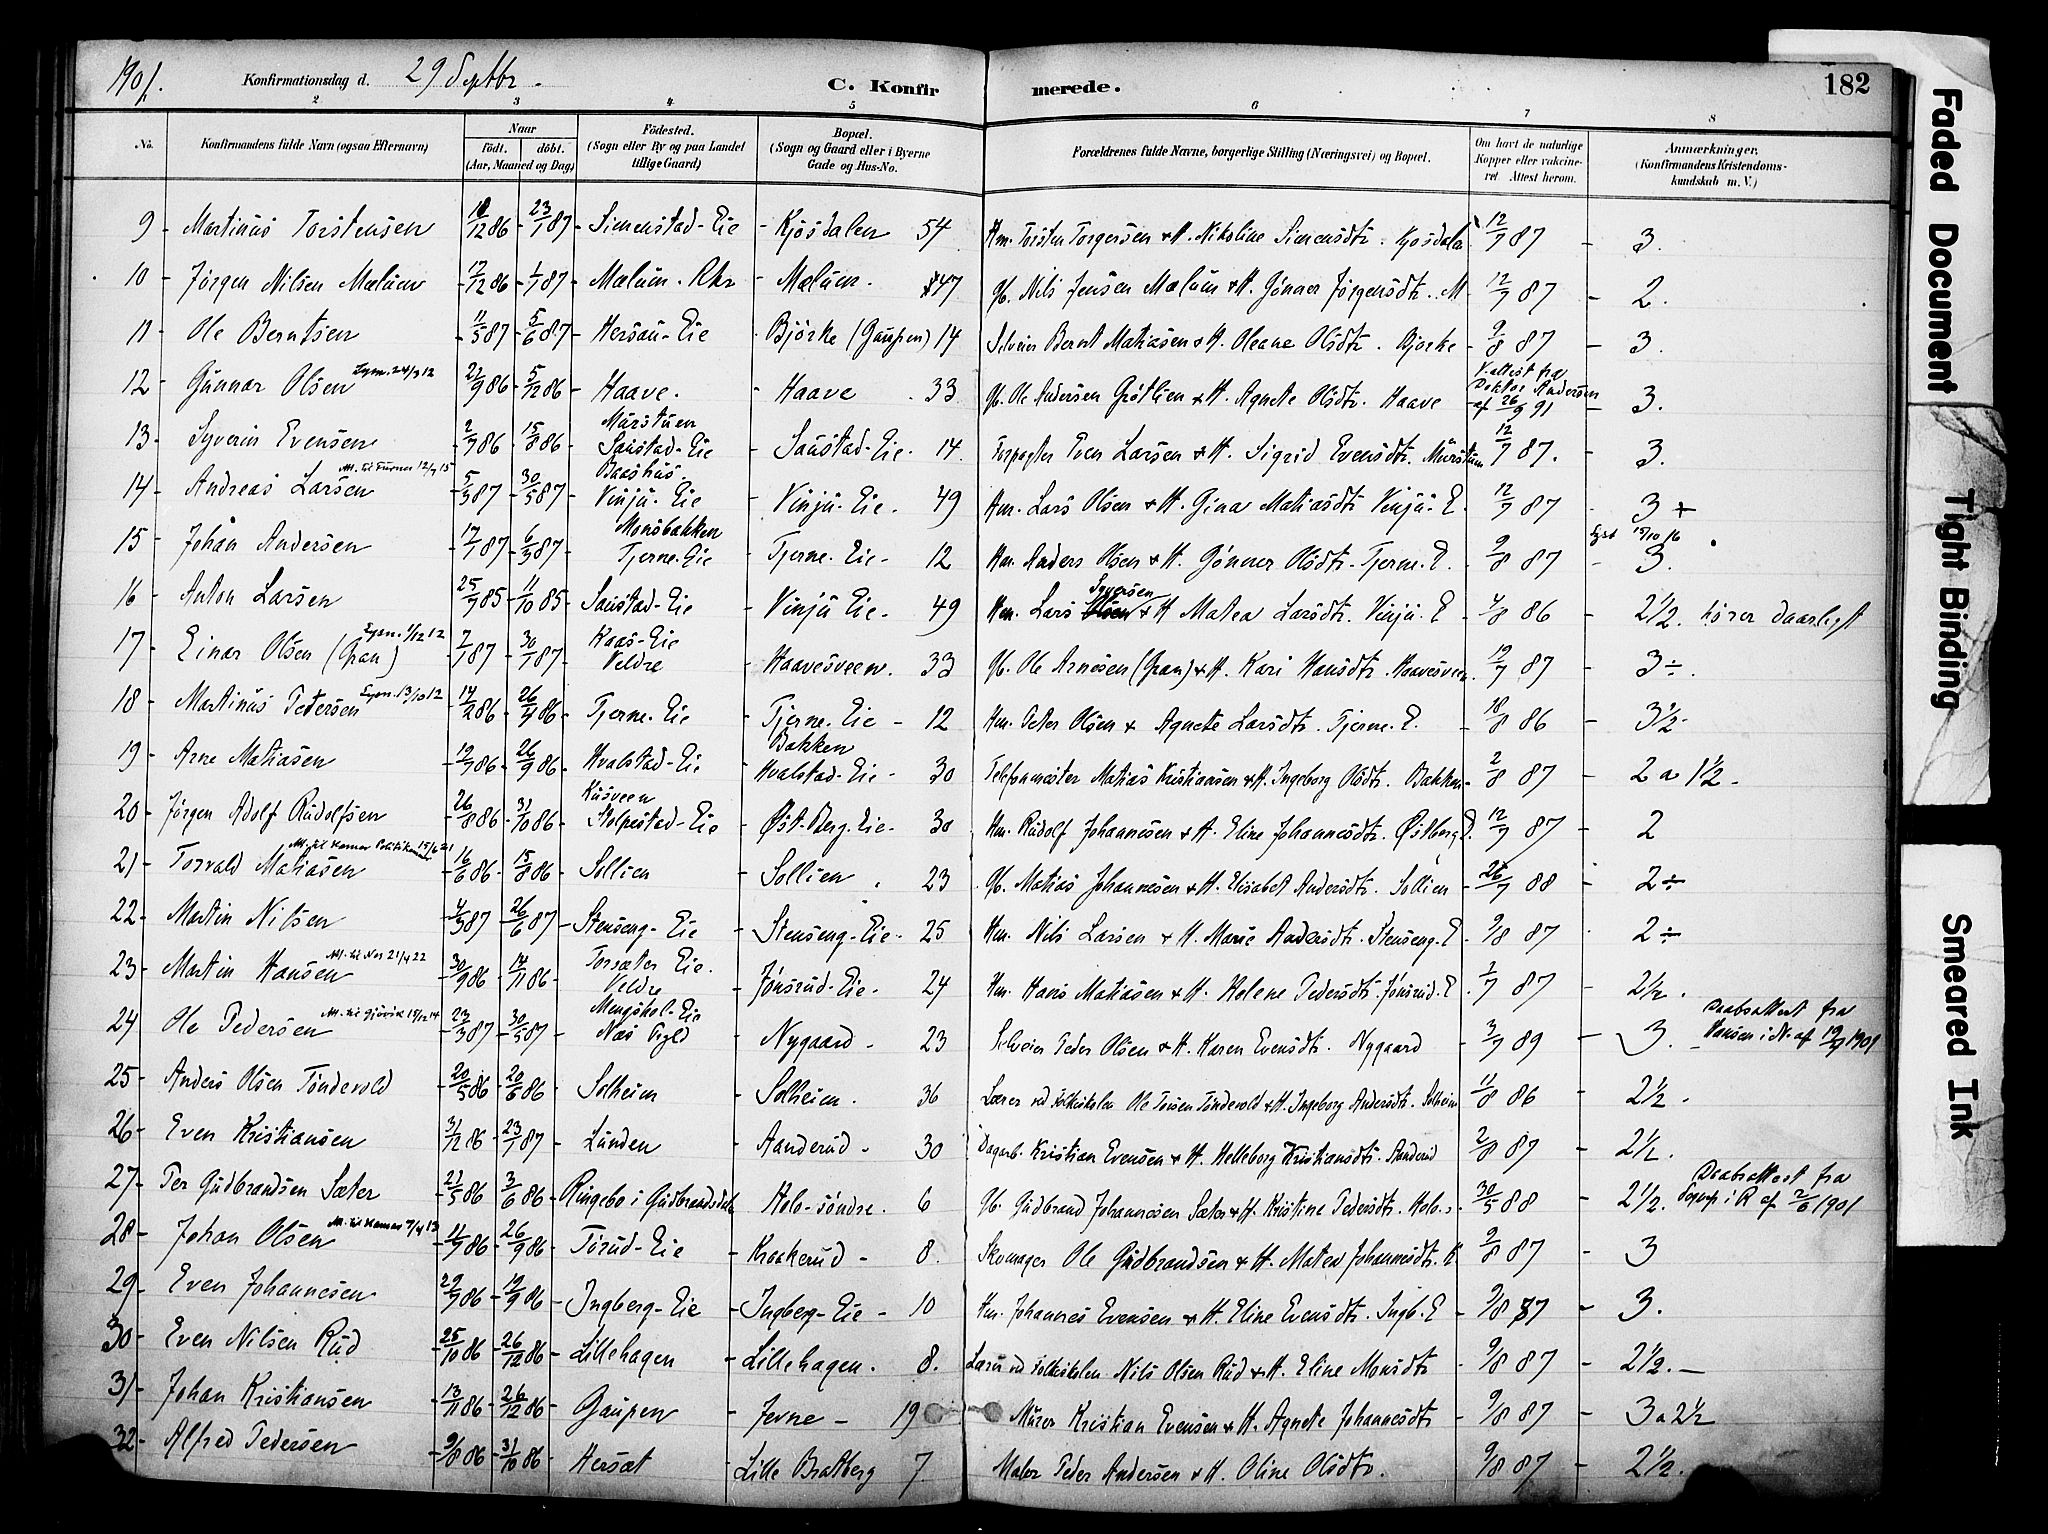 1901. Konfirmationsdag d. 29 Septbr. C. Konfirmerede. 182
2 3 4 5 6 7 8
No. Konfirmandens fulde Navn (ogsaa Efternavn) Naar födt. döbt. (Aar, Maaned og Dag) Födested. (Sogn eller By og paa Landet tillige Gaard) Bopæl. (Sogn og Gaard eller i Byerne Gade og Hus-No. Forældrenes fulde Navne, borgerlige Stilling (Næringsvei) og Bopæl. Om havt de naturlige Kopper eller vakcineret Attest herom. Anmærkninger. (Konfirmandens Kristendomskundskab m. V.)
9 - Martinus Torstensen 11/12 86 - 23/1 87 Simenstad-Eie - Kjösdalen 54 Hm. Torsten Torgersen & H. Nikoline Simensdtr. Kjosdalen 12/7 87 - 3.
10 - Jörgen Nilsen Mælum 17/12 86 - 1/1 87 Mælum. Rkr - Mælum. 47 Gb. Nils Jensen Mælum & H. Gönner Jörgensdtr. M - 12/7 87 - 2.
11 - Ole Berntsen 11/5 87 - 5/6 87 - Hersau-Eie - Björke (Gaupen) 14 Selveier Bernt Matiasen & H. Oleane Olsdtr. Bjorke - 9/8 87 - 3.
12 - Gunnar Olsen 22/9 86 - 5/12 86 - Haave. - Haave 33 Gb. Ole Andersen Grötlien & H. Agnete Olsdtr. Haave V.attest fra Doktor Andersen af 26/9 91 - 3.
13 - Syverin Evensen 2/7 86 - 15/8 86 - Murstuen Saustad-Eie - Saustad-Eie. 14. Forpagter Even Larsen & H. Sigrid Evensdtr. Murstuen 12/7 87. - 3.
14 - Andreas Larsen Att. til Furnes 12/7 15 5/3 87 - 30/5 87 - Baashus. Vinju-Eie - Vinju-Eie. 49 Hm. Lars Olsen & H. Gina Matiasdtr. Vinju-E. 12/7 87 3 +
15 - Johan Andersen 17/1 87 - 6/3 87 - Monsbakken Tjerne-Eie - Tjerne-Eie - 12 Hm. Anders Olsen & H. Gönner Olsdtr. Tjerne-E. - 9/8 87 - 3. Lyst 15/10 16
16 - Anton Larsen 25/7 85 - 11/10 85 - Saustad-Eie - Vinju Eie - 49 Hm. Lars Olsen Syversen & H Matea Larsdtr. Vinju-E - 4/8 86 - 2 1/2. hører daarligt
17 - Einar Olsen (Gran) 2/1 87 - 30/1 87 - Kaas-Eie Veldre - Haavesveen. 33 Gb. Ole Arnesen (Gran) & H. Kari Hansdtr. Haavesveen 12/7 87 - 3 ÷.
18 - Martinus Pedersen 14/2 86 - 26/4 86 - Tjerne-Eie - Tjerne-Eie - 12 Hm. Peter Olsen & Agnete Larsdtr. Tjerne-E. - 18/8 86 - 3 1/2 -
19 - Arne Matiasen 19/7 86 - 26/9 86 - Hvalstad-Eie - Bakken Hvalstad-Eie - 30 Telefonmester Matias Kristiansen & H. Ingeborg Olsdtr. Bakken - 2/8 87 - 2 a 1 1/2 -
20 - Jörgen Adolf Rudolfsen - 26/8 86 - 31/10 86 - Kusveen Stolpestad-Eie - Øst. Berg-Eie - 30 Hm. Rudolf Johannesen & H. Eline Johannesdtr. Østberg E. 12/7 87 - 2
21 - Torvald Matiasen - 16/6 86 - 15/8 86 - Sollien - Sollien . 23 Gb. Matias Johannesen & H. Elisabet Andersdtr. Sollien - 26/7 88 - 2 ÷
22 - Martin Nilsen - 4/3 87 - 26/6 87 - Stenseng-Eie - Stenseng-Eie - 25 Hm. Nils Larsen & H. Marie Andersdtr. Stenseng-E - 9/8 87 2 ÷
23 - Martin Hansen Att. til Nes 21/4 22 - 30/9 86 - 14/11 86 - Torsæter Eie. Veldre - Jönsrud-Eie - 24 Hm. Hans Matiasen & H. Helene Pedersdtr. Jönsrud-E. 2/7 87 - 2 1/2 .
24 - Ole Pedersen Att. til Gjövik 15/12 14 - 23/3 87 - 30/5 87 - Mengshol-Eie Næs Vgld - Nygaard - 23 Selveier Peder Olsen & H. Karen Evensdtr. Nygaard - 3/7 89 - 3. Daabsattest fra Hansen i N. af 19/9 1901
25 - Anders Olsen Töndevold - 20/5 86 - 20/6 86 - Solheim - Solheim. 36 Lærer ved Folkeskolen Ole Torsen Töndevold & H. Ingeborg Andersdtr. Solheim 11/8 86 - 2 1/2 .
26 - Even Kristiansen - 31/12 86 - 23/1 87 - Lunden - Aanderud - 30 Dagarb. Kristian Evensen & H. Helleborg Kristiansdtr. Aanderud 2/8 87 - 2 1/2 .
27 - Per Gudbrandsen Sæter - 21/5 86 - 3/6 86 - Ringebo i Gudbrandsdalen - Holo-söndre. 6 Gb. Gudbrand Johannesen Sæter & H. Kristine Pedersdtr. Holo s - 30/5 88 - 2 1/2. Daabsattest fra i R af 2/6 1901
28 - Johan Olsen - 11/7 86 - 26/9 86 - Törud-Eie - Kraakerud - 8. Skomager Ole Gudbrandsen & H. Matea Johannesdtr. K 9/8 87 - 3
29 - Even Johannesen - 29/7 86 - 19/9 86 - Ingberg-Eie - Ingberg-Eie - 10 Hm. Johannes Evensen & H. Eline Evensdtr. Ingb.-E - 9/8 87 - 3.
30 - Even Nilsen Rud - 25/10 86 - 26/12 86 - Lillehagen - Lillehagen. 8. Lærer ved Folkeskolen Nils Olsen Rud & H. Eline Monsdtr - 9/8 87 - 2 1/2. -
31 - Johan Kristiansen - 13/11 86 - 26/12 86 - Gaupen - Jevne - 19 Murer Kristian Evensen & H. Agnete Johannesdtr - 9/8 87 - 3 a 2 1/2
32 - Alfred Pedersen - 9/8 86 - 31/10 86 - Hersæt - Lille Bratberg 7 Maler Peder Andersen & H. Oline Olsdtr. - 9/8 87 - 2 1/2.
Faded Document
Tight Binding
Smeared Ink